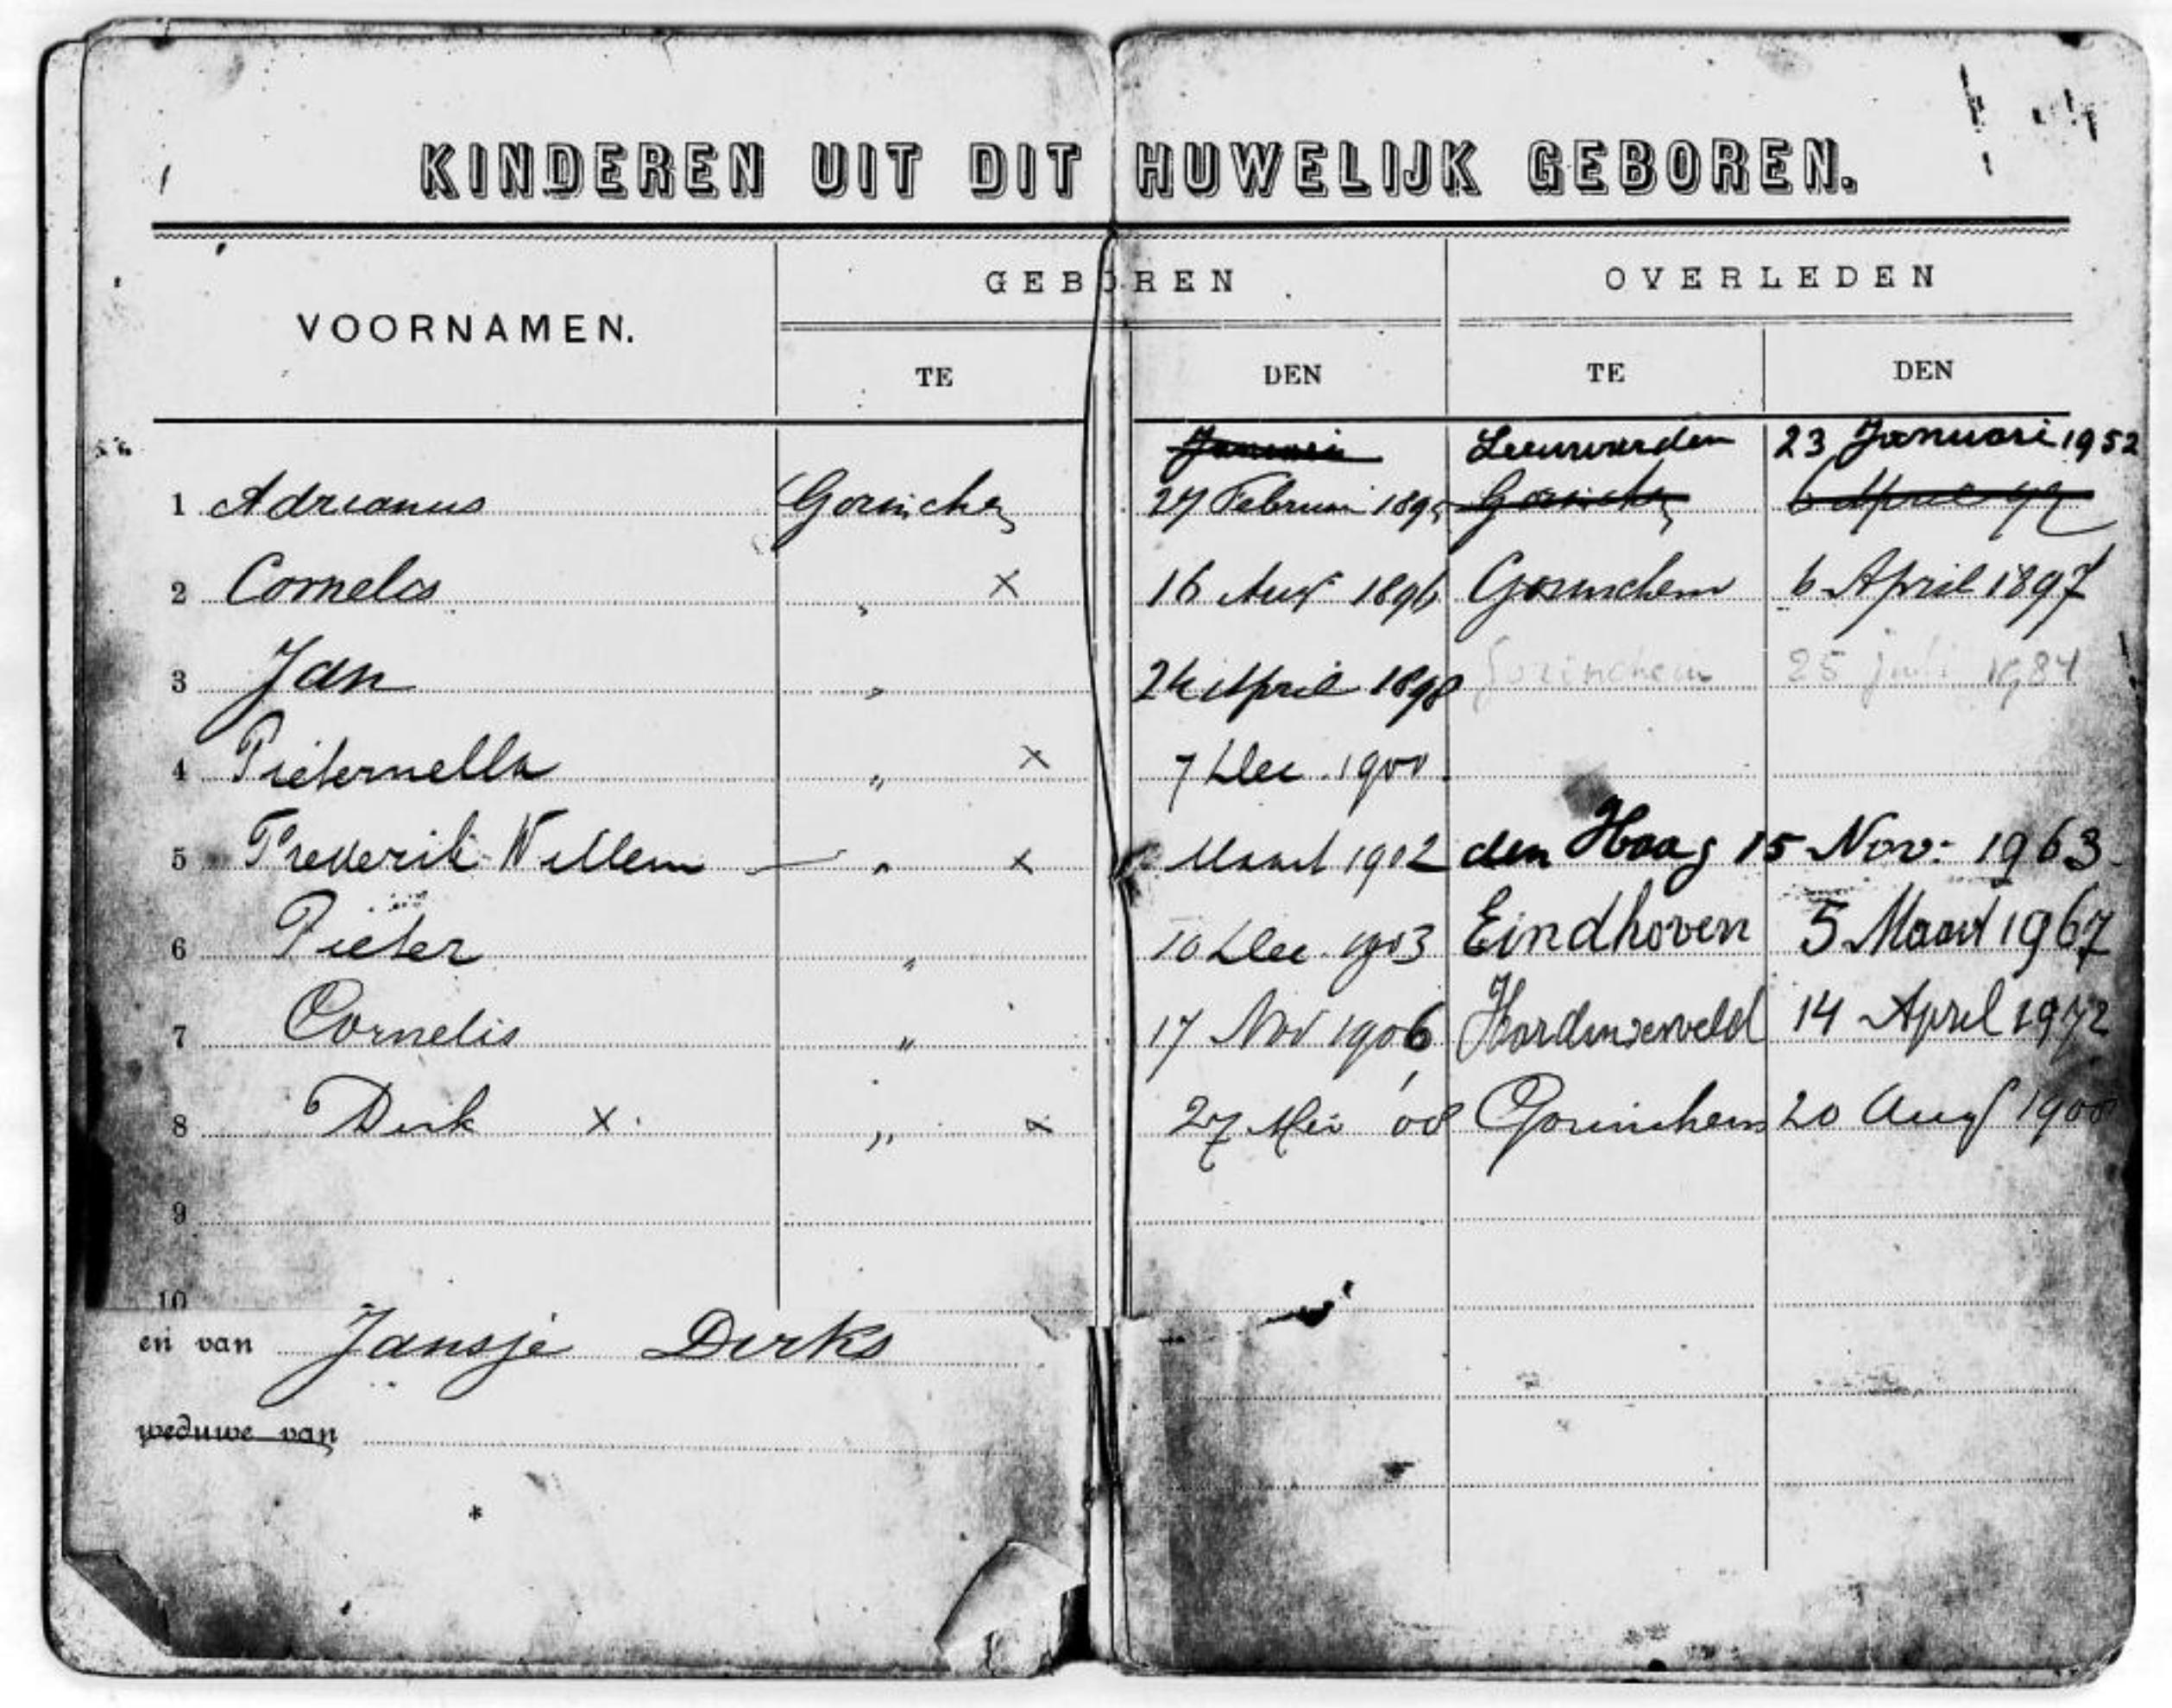 KINDEREN UIT DIT HUWELIJK GEBOREN.
VOORNAMEN. GEBOREN OVERLEDEN
TE DEN TE DEN
Januari Leeuwarden 23 Januari 1952
1 Adrianus Gorinchem 27 Februari 1895 Gorinchem 6 April 97
2 Cornelis „ X 16 Aug 1896 Gorinchem 6 April 1897
3 Jan „ 24 April 1898 Gorinchem 25 juli 1984
4 Pieternella „ X 7 Dec. 1900.
5 Frederik Willem „ X Maart 1902 den Haag 15 Nov: 1963.
6 Pieter „ 10 Dec. 1903 Eindhoven 5 Maart 1967
7 Cornelis „ 17 Nov 1906 Hardinxveld 14 April 1972
8 Dirk X „ X 27 Mei '08 Gorinchem 20 Aug 1908
9
10
en van Jansje Dirks
weduwe van